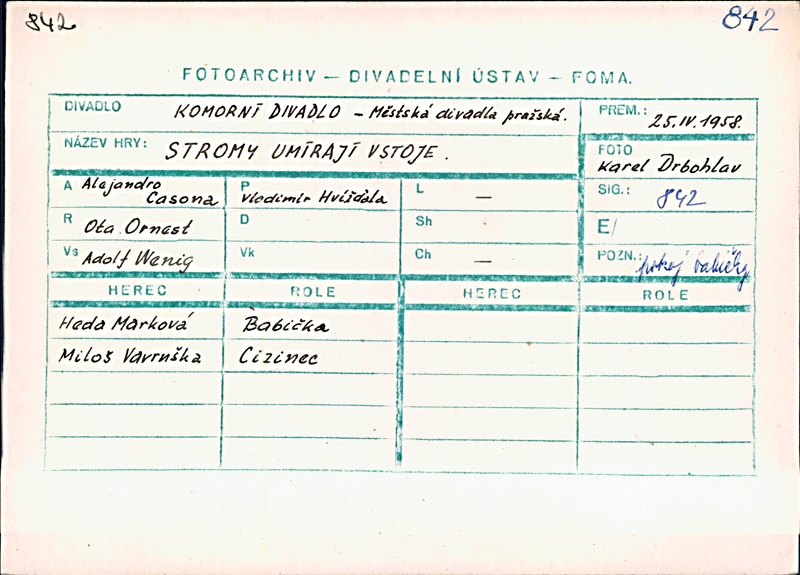 842
842
FOTOARCHIV — DIVADELNÍ ÚSTAV — FOMA.
DIVADLO KOMORNÍ DIVADLO - Městská divadla pražská.
PREM.: 25.IV.1958.
NÁZEV HRY: STROMY UMÍRAJÍ VSTOJE.
FOTO Karel Drbohlav
A Alejandro Casona
P Vladimír Hvížďala
L —
SIG.: 842
R Ota Ornest
D
Sh
E/
Vs Adolf Wenig
Vk
Ch —
POZN.: pokoj babičky
HEREC ROLE HEREC ROLE
Heda Marková Babička
Miloš Vavruška Cizinec